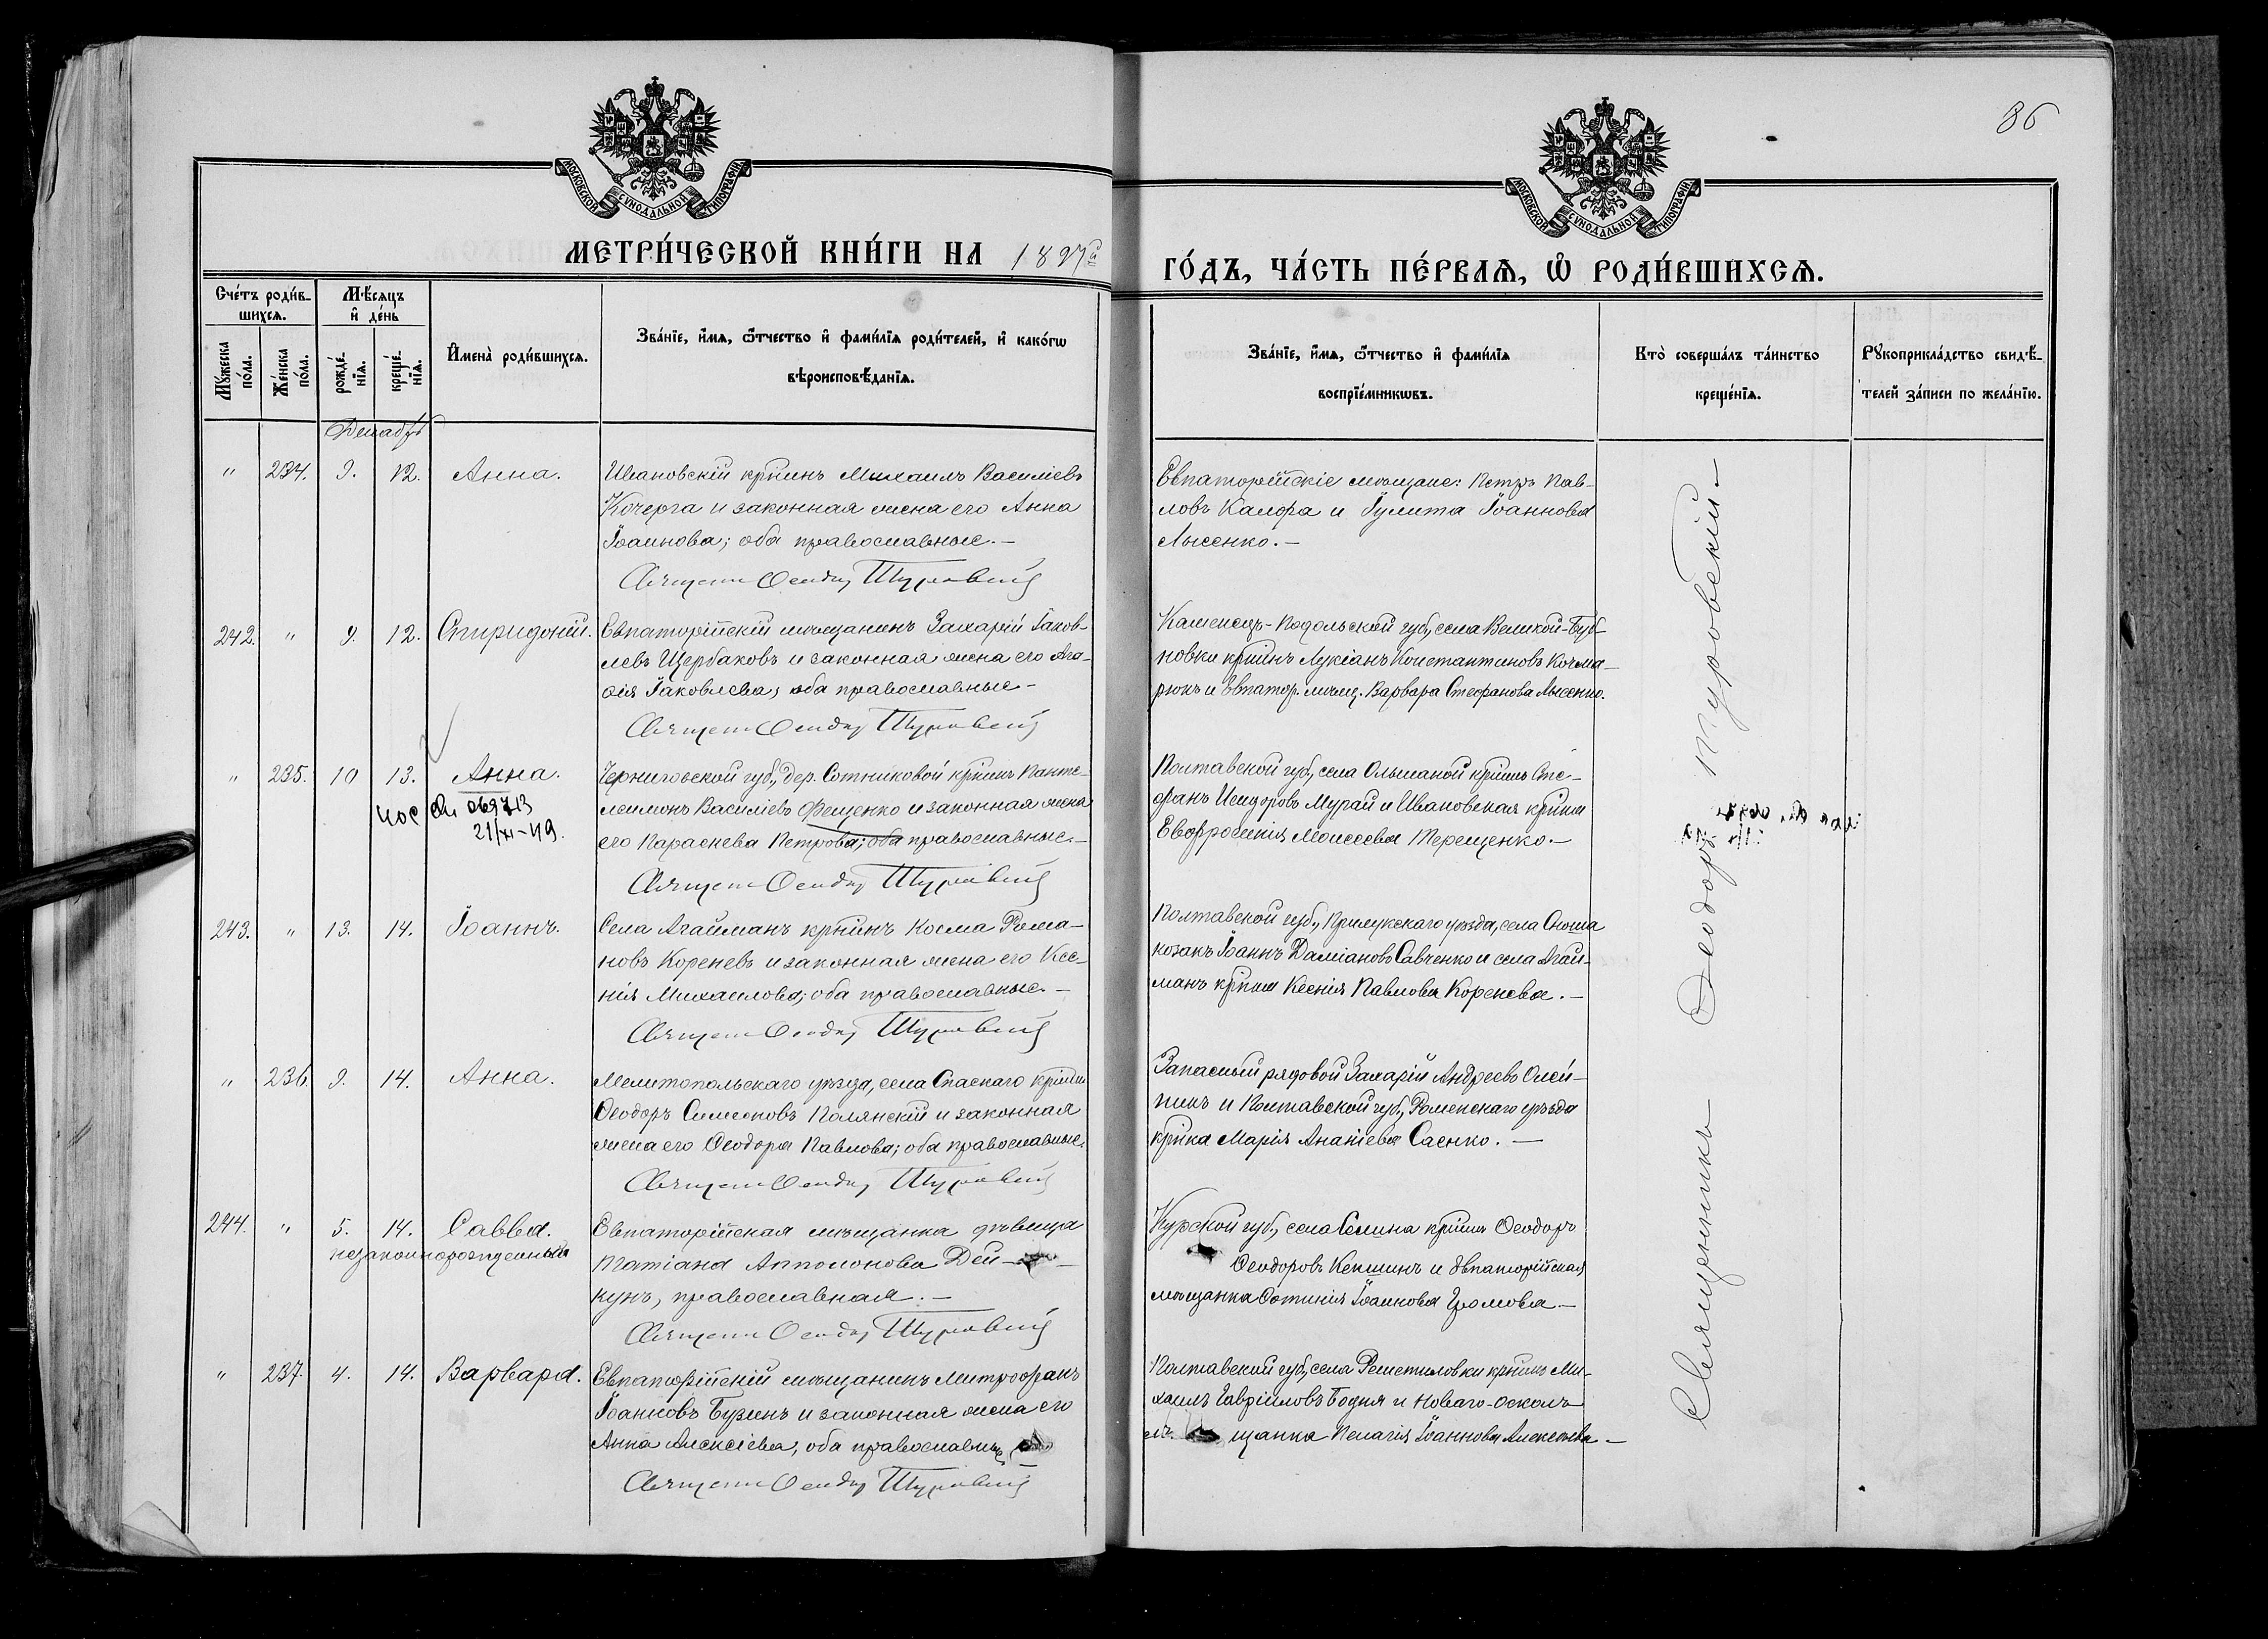 36
МОСКОВСКОЙ СУНОДАЛЬНОЙ ТИПОГРАФІИ
МОСКОВСКОЙ СУНОДАЛЬНОЙ ТИПОГРАФІИ
МЕТРИ́ЧЕСКОЙ КНИ́ГИ НА 1897й
ГО́ДЪ, ЧА́СТЬ ПЕ́РВАѦ, Ѡ РОДИ́ВШИХСѦ.
Сче́тъ роди́в-
шихсѧ.
Мꙋ́жеска по́ла.
Же́нска по́ла.
Мѣ́сяцъ
и҆ де́нь
рожде́-
нїѧ.
креще́-
нїѧ.
И҆мена̀ роди́вшихсѧ.
Зва́нїе, и҆́мѧ, ѻ҆́тчество и҆ фами́лїѧ роди́телей, и҆ како́гѡ
вѣроисповѣ́данїѧ.
Зва́нїе, и҆́мѧ, ѻ҆́тчество и҆ фами́лїѧ
воспрїе́мникѡвъ.
Кто̀ соверша́лъ та́инство
креще́нїѧ.
Рꙋкоприкла́дство свидѣ́-
телей за́писи по жела́нїю.
Декабрь
" 234. 9. 12. Анна.
Ивановскій крнинъ Михаилъ Василіевъ
Кочерга и законная жена его Анна
Іоаннова; оба православные.—
Священ Ѳеодор Туровскій
Евпаторійскіе мѣщане: Петръ Пав-
ловъ Калфа и Іулита Іоаннова
Лысенко.—
242. " 9. 12. Спиридоній.
Евпаторійскій мѣщанинъ Захарій Іаков-
левъ Щербаковъ и законная жена его Ага-
ѳія Іаковлева; оба православные-
Священ Ѳеодор Туровскій
Каменецъ-Подольской губ., села Великой-Буб-
новки крнинъ Лукіанъ Константиновъ Кочма-
рюкъ и Евпатор. мѣщ. Варвара Стефанова Лысенко.
" 235. 10 13. Анна.
069713
21/XI-49.
Черниговской губ., дер. Сотниковой крнинъ Панте-
леимонъ Василіевъ Фещенко и законная жена
его Параскева Петрова; оба православные.—
Священ Ѳеодор Туровскій
Полтавской губ., села Ольшаной крнинъ Сте-
фанъ Исидоровъ Мугай и Ивановская крнка
Евфросинія Моисеева Терещенко.—
243. " 13. 14. Іоаннъ.
Села Агайманъ крнинъ Косма Рома-
новъ Кореневъ и законная жена его Ксе-
нія Михаилова; оба православные.—
Священ Ѳеодор Туровскій
Полтавской губ., Прилукскаго уѣзда, села Сноша
козакъ Іоаннъ Даміановъ Савченко и села Агай-
манъ крнка Ксенія Павлова Коренева.—
" 236. 9. 14. Анна.
Мелитопольскаго уѣзда, села Спаскаго крнинъ
Ѳеодоръ Симеоновъ Полянскій и законная
жена его Ѳеодора Павлова; оба православные.
Священ Ѳеодор Туровскій
Запасный рядовой Захарій Андреевъ Олей-
никъ и Полтавской губ., Роменскаго уѣзда
крнка Марія Ананіева Саенко.—
244. " 5. 14. Савва.
незаконнорожденный
Евпаторійская мѣщанка дѣвица
Татіана Апполонова Дей-
кунъ, православная.—
Священ Ѳеодор Туровскій
Курской губ., села Селина крнинъ Ѳеодоръ
Ѳеодоровъ Кекшинъ и Евпаторійская
мѣщанка Фотинія Іоаннова Громова.—
" 237. 4. 14. Варвара.
Евпаторійскій мѣщанинъ Митрофанъ
Іоанновъ Бузинъ и законная жена его
Анна Алексіева, оба православные
Священ Ѳеодор Туровскій
Полтавской губ., села Решетиловки крнинъ Ми-
хаилъ Гавріиловъ Бодня и Новаго-Оскола
щанка Пелагія Іоаннова Алексѣева—
Священникъ Ѳеодоръ Туровскій—